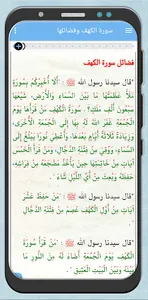 سورة الكهف وفضائلها
فضائل سورة الكهف
"قال سيدنا رسول الله ﷺ : " أَلَا أُخْبِرُكُمْ بِسُورَةٍ
مَلَأَ عَظَمَتُهَا مَا بَيْنَ السَّمَاءِ وَالْأَرْضِ، شَيَّعَهَا
سَبْعُونَ أَلْفَ مَلَكٍ؟ . سُورَةُ الْكَهْفِ مَنْ قَرَأَهَا يَوْمَ
الْجُمُعَةِ غَفَرَ اللهُ لَهُ بِهَا إِلَى الْجُمُعَةِ الْأُخْرَى،
وَزِيَادَةُ ثَلَاثَةِ أَيَّامٍ بَعْدَهَا، وَأُعْطِيَ نُورًا يَبْلُغُ إِلَى
السَّمَاءِ، وَوُقِيَ فِتْنَةَ الدَّجَّالِ، وَمَنْ قَرَأَ الْخَمْسَ
آيَاتٍ مِنْ خَاتِمَتِهَا حِينَ يَأْخُذُ مَضْجَعَهُ مِنْ فِرَاشِهِ،
حُفِظَ وَبُعِثَ مِنْ أَيِّ اللَّيْلِ شَاءَ " .
"قال سيدنا رسول الله ﷺ : " مَنْ حَفِظَ عَشْرَ
آيَاتٍ مِنْ أَوَّلِ الْكَهْفِ عُصِمَ مِنْ فِتْنَةِ الدَّجَّالِ
".
"قال سيدنا رسول الله ﷺ : " مَنْ قَرَأَ سُورَةَ
الْكَهْفِ يَوْمَ الْجُمُعَةِ أَضَاءَ لَهُ مِنَ النُّورِ مَا
بَيْنَهُ وَبَيْنَ الْبَيْتِ الْعَتِيقِ "